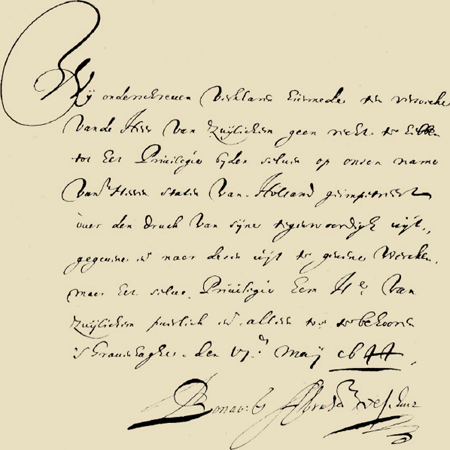 Wij onderschreven verklaren hiermede ten versoecke
vande Heer van Zuylichem geen recht te hebben
tot het Privilegie by den selven op onsen name
vande Heeren Staten van Holland geimpetreert
over den druck van syne tegenwoordigh uyt
gegevene en naer desen uyt te gevene Wercken,
maer het selve Privilegie den Hr van
Zuylichem en alles toe te behooren
's Gravenhaghe den 17en may 1644,
Bonav. Abraham Elsevier